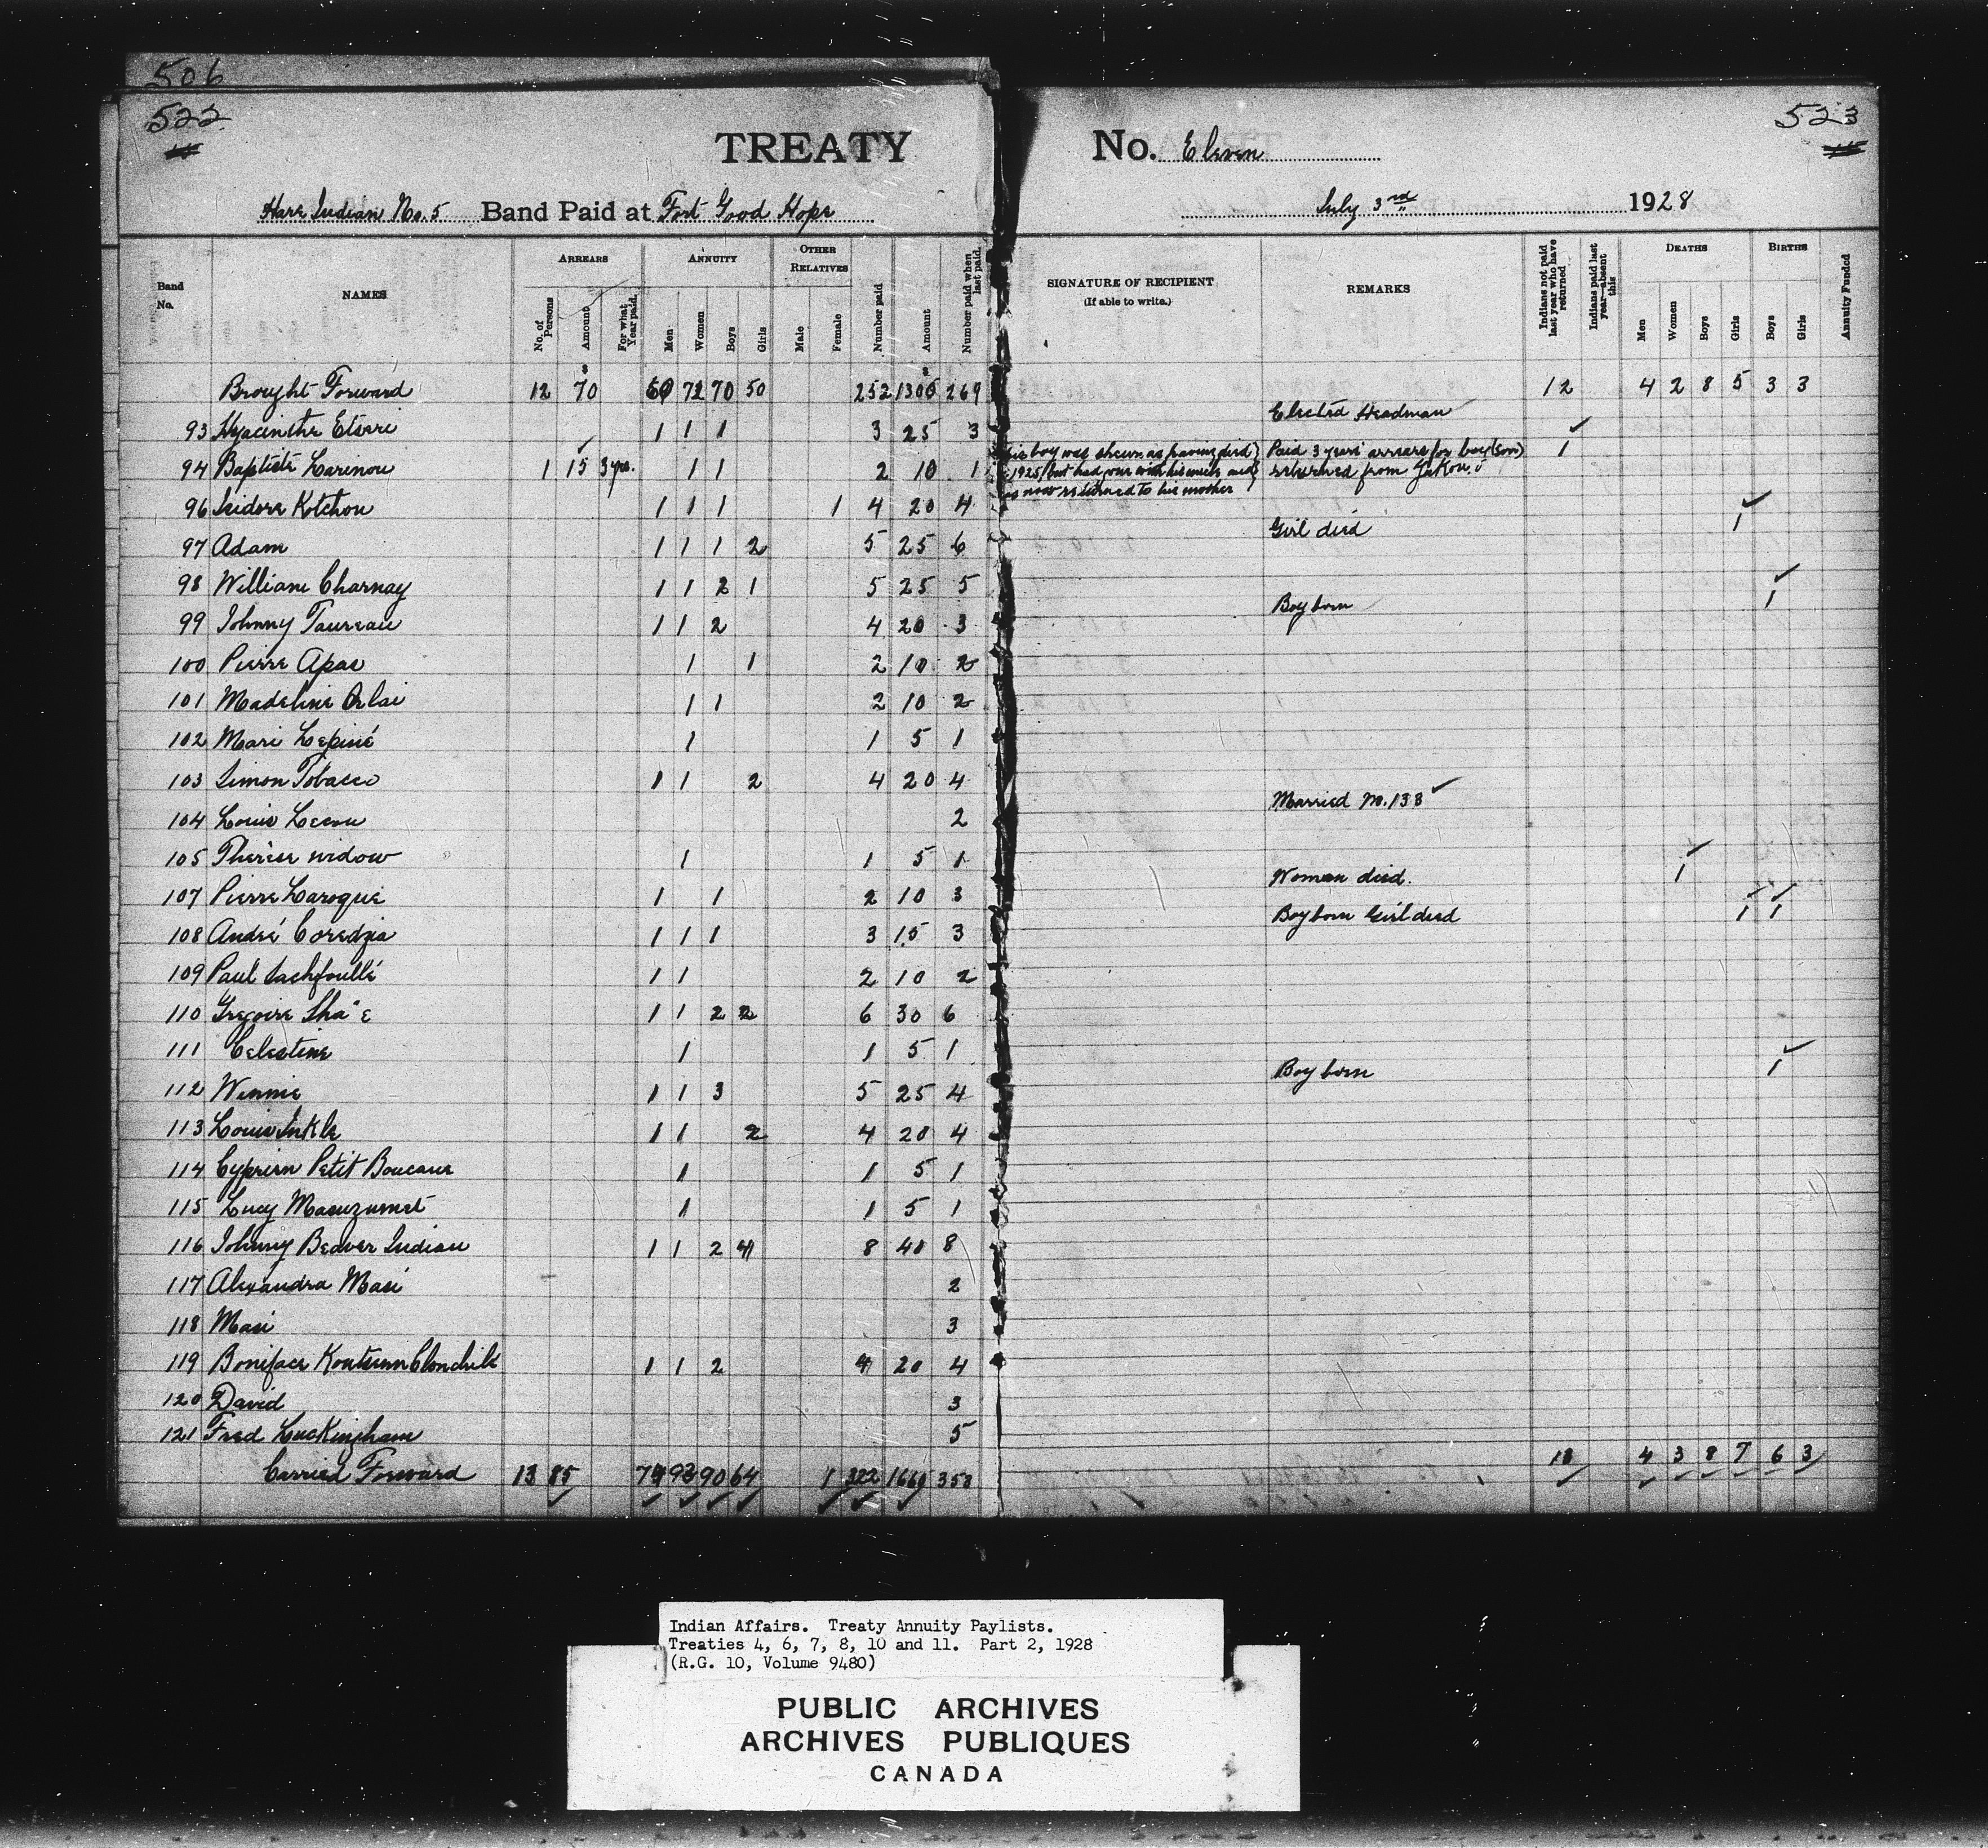 506
522
523
TREATY No. Eleven
Hare Indian No. 5 Band Paid at Fort Good Hope July 3rd 1928
Band No. NAMES ARREARS ANNUITY OTHER RELATIVES Number paid Amount Number paid when last paid. SIGNATURE OF RECIPIENT (If able to write.) REMARKS Indians not paid last year who have returned Indians paid last year—absent this DEATHS BIRTHS Annuity Funded
No. of Persons Amount For what Year paid. Men Women Boys Girls Male Female Men Women Boys Girls Boys Girls
Brought Forward 12 70 60 72 70 50 252 1306 269 12 4 2 8 5 3 3
93 Hyacinthe Etseri 1 1 1 3 25 3 Elected Headman
94 Baptiste Larinou 1 15 3 yrs. 1 1 2 10 1 his boy was shewn as having died 1925, but had run with his uncle and is now returned to his mother Paid 3 years' arrears for boy (son) returned from Yukon. 1
96 Isidore Kotchou 1 1 1 1 4 20 4
97 Adam 1 1 1 2 5 25 6 Girl died 1
98 William Charnay 1 1 2 1 5 25 5
99 Johnny Taureau 1 1 2 4 20 3 Boy born 1
100 Pierre Apae 1 1 2 10 2
101 Madeline 1 1 2 10 2
102 Mari Lepiné 1 1 5 1
103 Simon Tobacco 1 1 2 4 20 4
104 Louis Lecou 2 Married No. 138
105 Therese widow 1 1 5 1
107 Pierre Laroque 1 1 2 10 3 Woman died. 1
108 André Coredzia 1 1 1 3 15 3 Boy born Girl died 1 1
109 Paul 1 1 2 10 2
110 Gregoire Sha'e 1 1 2 2 6 30 6
111 Celestine 1 1 5 1
112 Winnie 1 1 3 5 25 4 Boy born 1
113 Louis Inkle 1 1 2 4 20 4
114 Cyprien Petit Boucane 1 1 5 1
115 Lucy Manuzumet 1 1 5 1
116 Johnny Beaver Indian 1 1 2 4 8 40 8
117 Alexandra Masi 2
118 Masi 3
119 Boniface 1 1 2 4 20 4
120 David 3
121 Fred Luckingham 5
Carried Forward 13 85 90 64 1 322 1660 353 4 3 8 7 6 3
Indian Affairs. Treaty Annuity Paylists.
Treaties 4, 6, 7, 8, 10 and 11. Part 2, 1928
(R.G. 10, Volume 9480)
PUBLIC ARCHIVES
ARCHIVES PUBLIQUES
CANADA